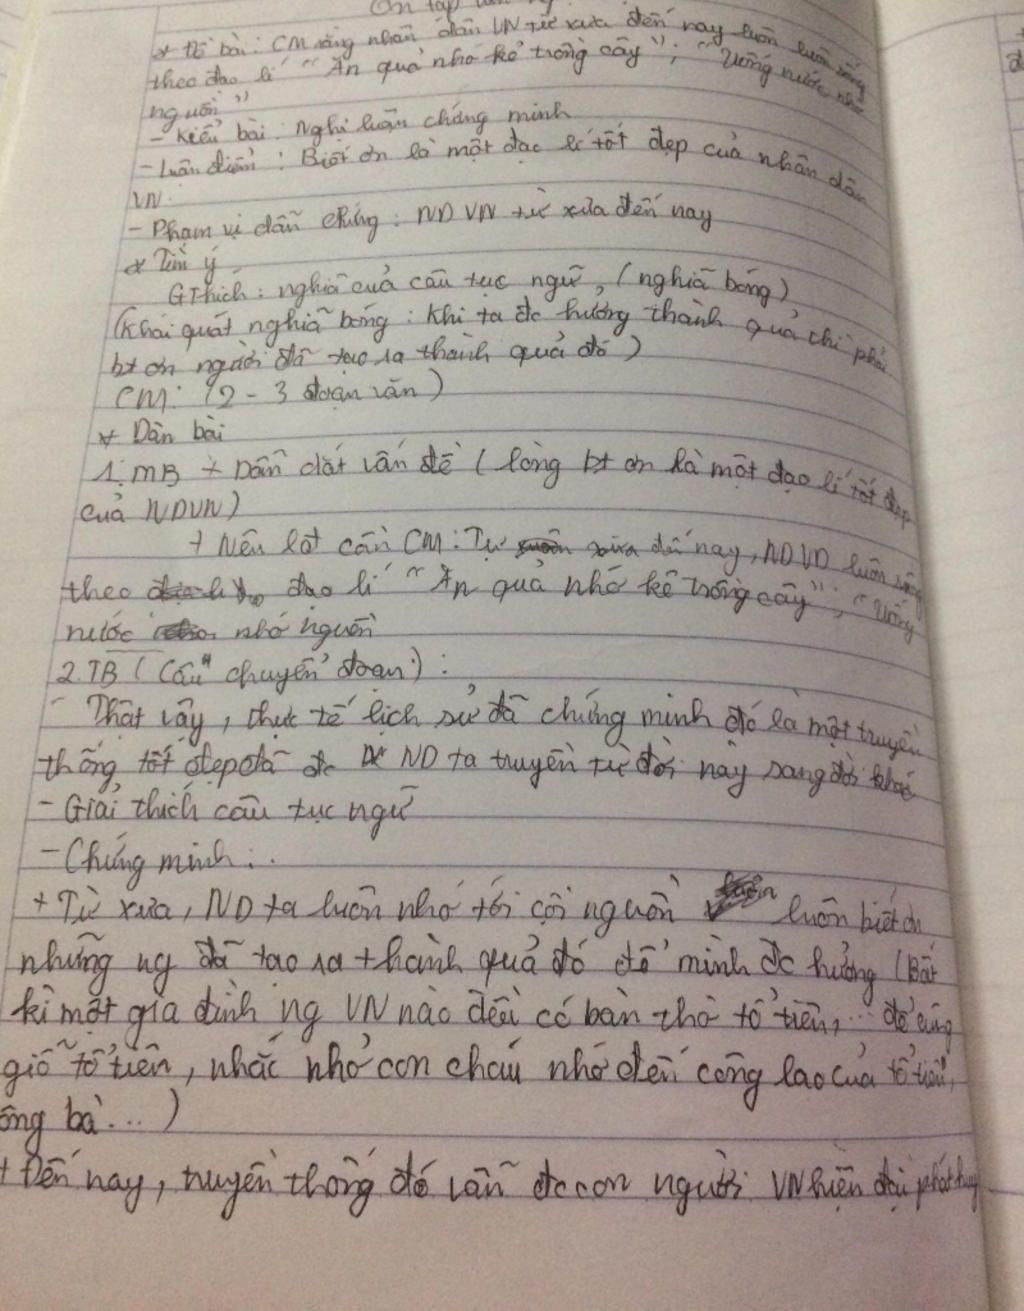 Ôn tập
* Đề bài: CM rằng nhân dân VN từ xưa đến nay luôn luôn sống
theo đạo lí "Ăn quả nhớ kẻ trồng cây"; "Uống nước nhớ
nguồn"
- Kiểu bài: Nghị luận chứng minh
- Luận điểm: Biết ơn là một đạo lí tốt đẹp của nhân dân
VN.
- Phạm vi dẫn chứng: ND VN từ xưa đến nay
* Tìm ý
GThích: nghĩa của câu tục ngữ, (nghĩa bóng)
(Khái quát nghĩa bóng: Khi ta đc hưởng thành quả thì phải
bt ơn người đã tạo ra thành quả đó)
CM: (2 - 3 đoạn văn)
* Dàn bài
1. MB + Dẫn dắt vấn đề (lòng bt ơn là một đạo lí tốt đẹp
của NDVN)
+ Nêu lđt cần CM: Từ xưa đến nay, NDVD luôn sống
theo đạo lí "Ăn quả nhớ kẻ trồng cây"; "Uống
nước nhớ nguồn
2. TB (Câu chuyển đoạn):
- Thật vậy, thực tế lịch sử đã chứng minh đó là một truyền
thống tốt đẹp đã đc ND ta truyền từ đời này sang đời khác
- Giải thích câu tục ngữ
- Chứng minh:.
+ Từ xưa, ND ta luôn nhớ tới cội nguồn luôn biết ơn
những ng đã tạo ra thành quả đó để mình đc hưởng (Bất
kì một gia đình ng VN nào đều có bàn thờ tổ tiên, ... để cúng
giỗ tổ tiên, nhắc nhở con cháu nhớ đến công lao của tổ tiên,
ông bà....)
+ Đến nay, truyền thống đó vẫn đc con người VN hiện đại phát huy